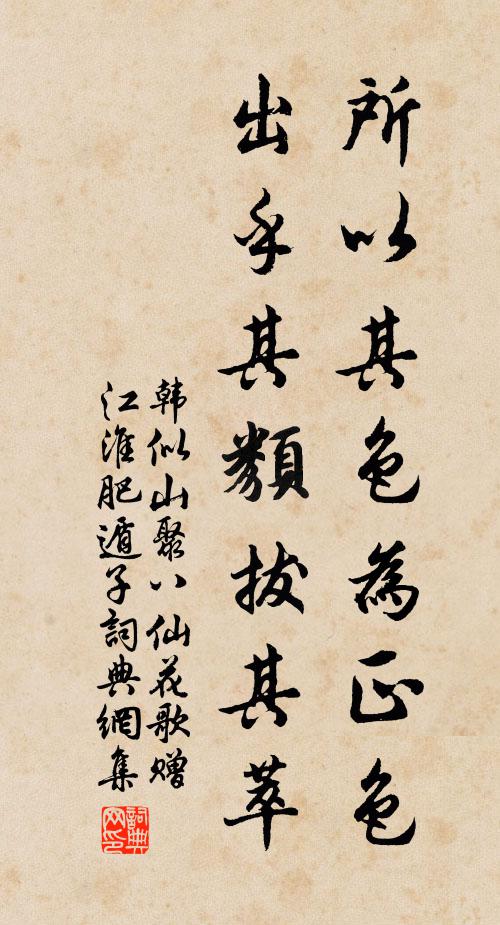 所以其色為正色
出乎其類拔其萃
韩似山聚八仙花歌赠
江淮肥遁子詞典網集
詞典网印